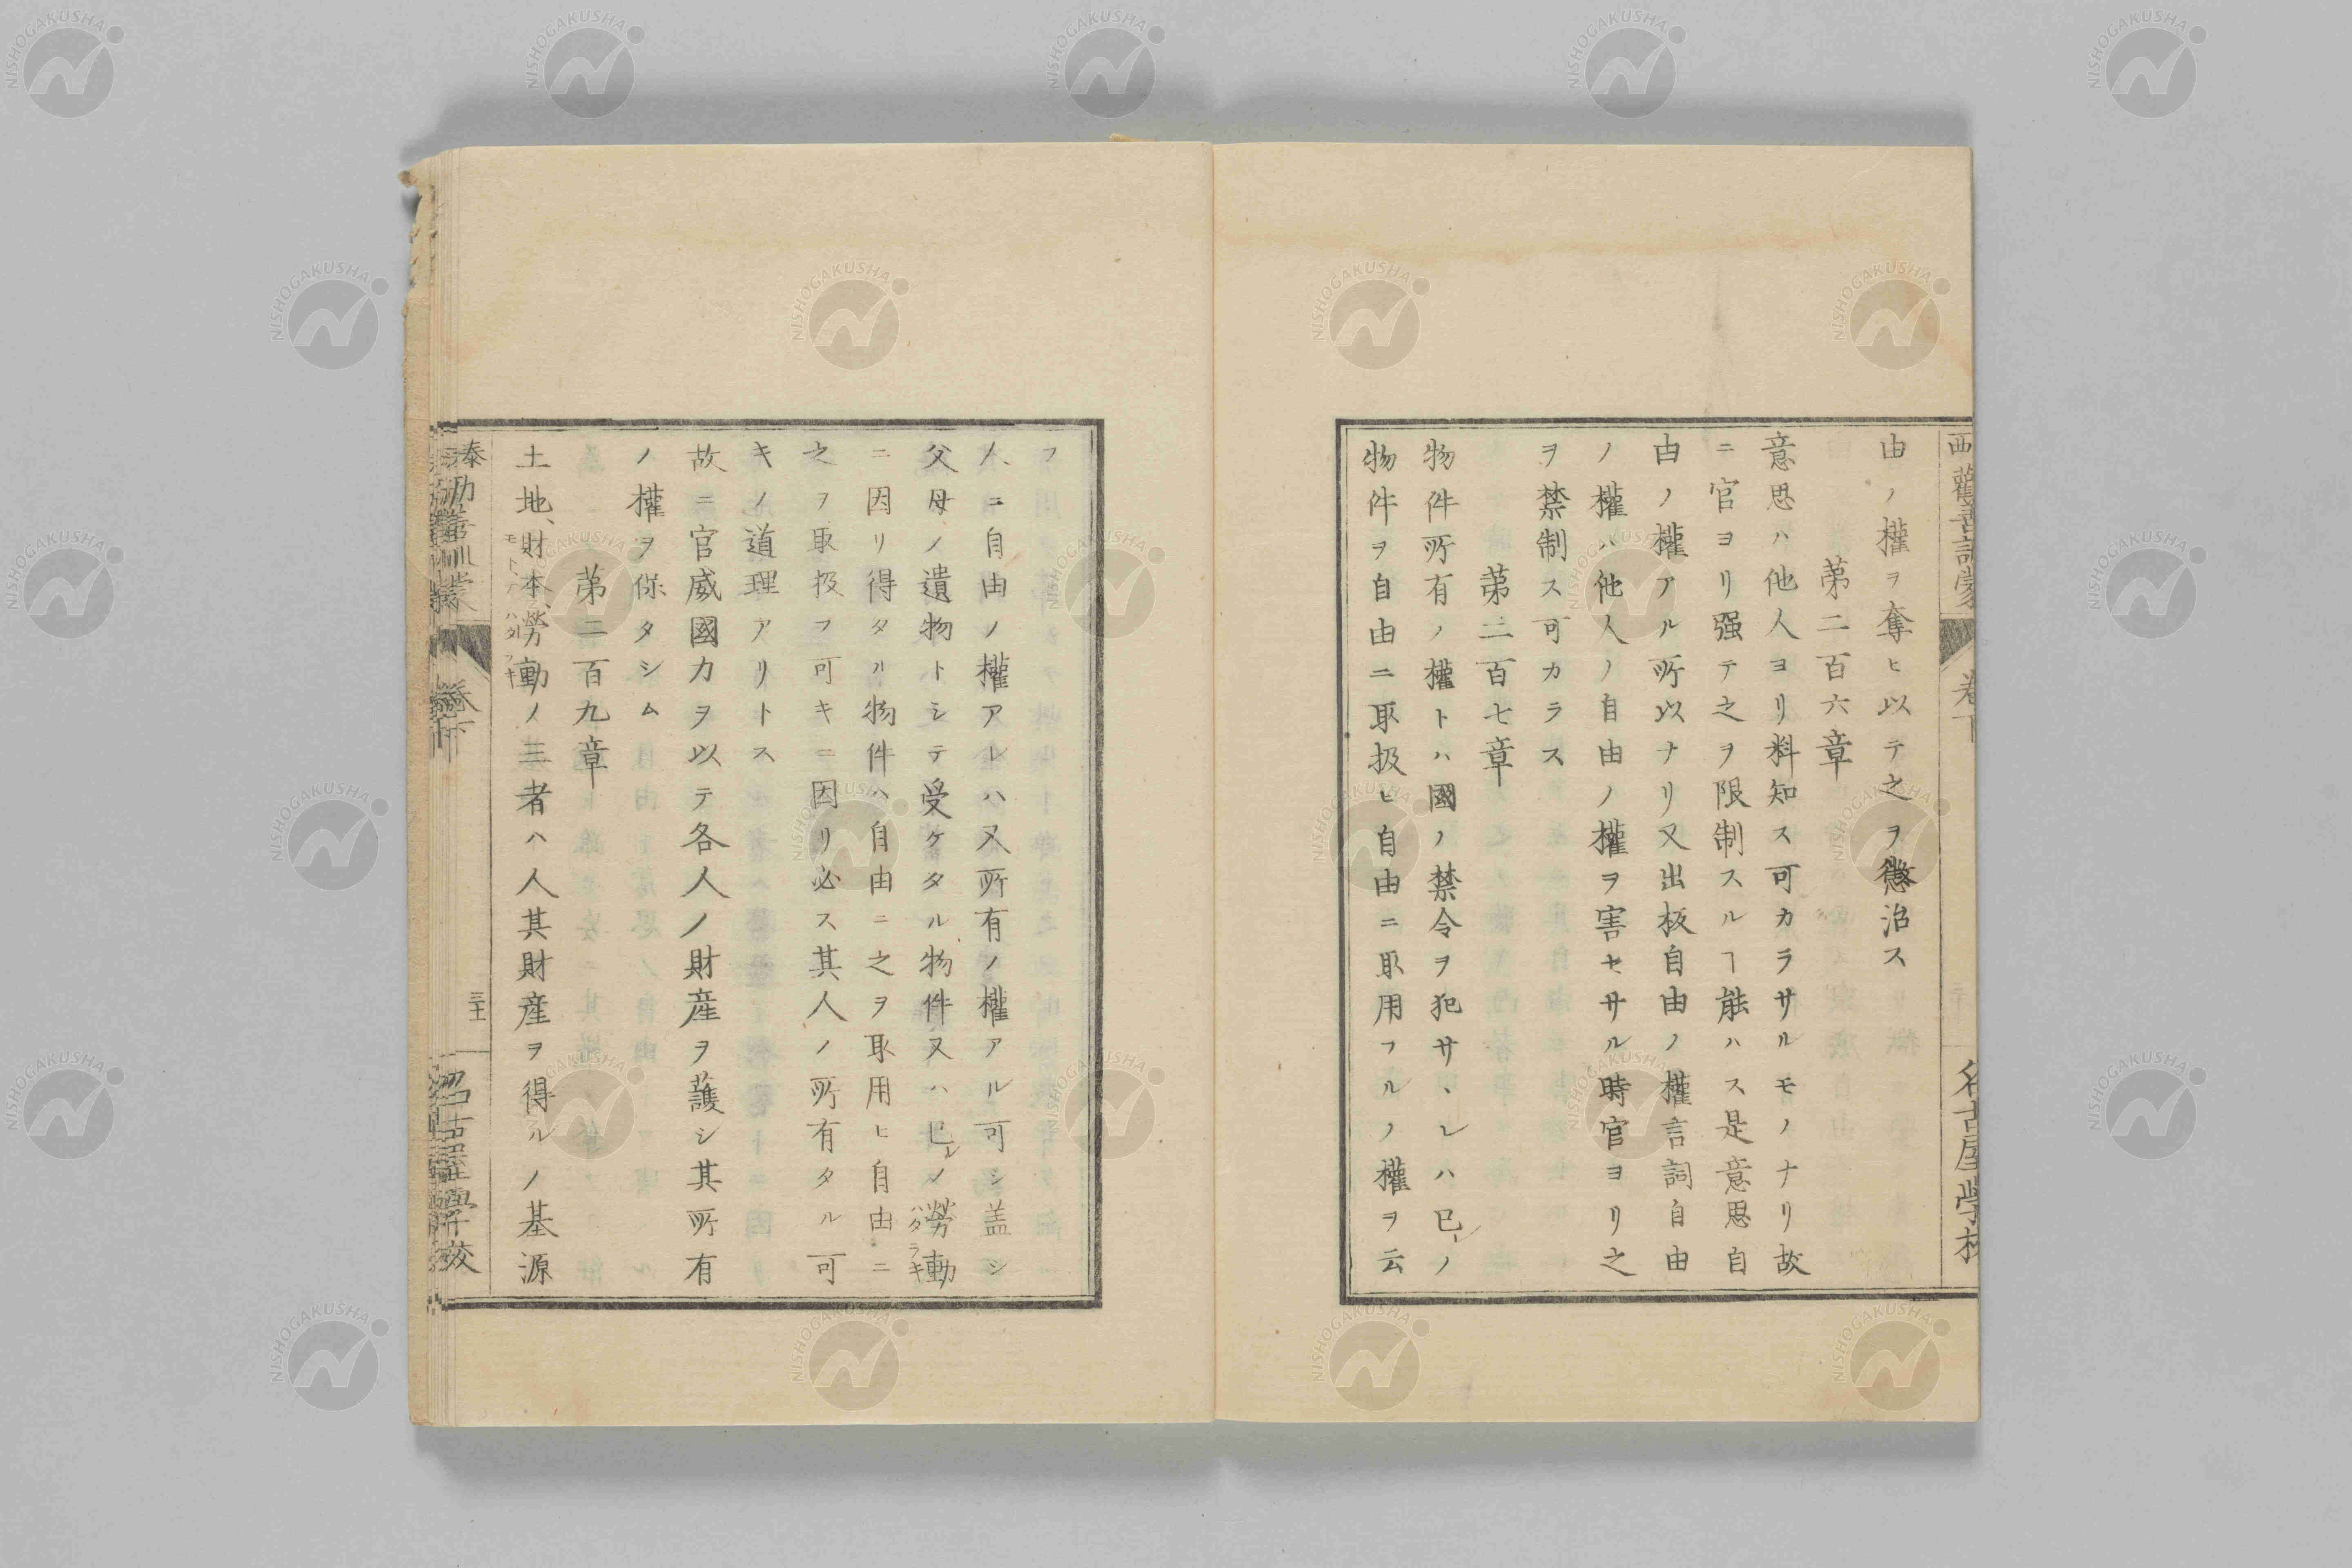 由ノ權ヲ奪ヒ以テ之ヲ懲治ス
第二百六章
意思ハ他人ヨリ料知ス可カラサルモノナリ故
ニ官ヨリ强テ之ヲ限制スルヿ能ハス是意思自
由ノ權アル所以ナリ又出板自由ノ權言詞自由
ノ權ハ他人ノ自由ノ權ヲ害セサル時官ヨリ之
ヲ禁制ス可カラス
第二百七章
物件所有ノ權トハ國ノ禁令ヲ犯サヽレハ已レノ
物件ヲ自由ニ取扱ヒ自由ニ取用フルノ權ヲ云
フ
人ニ自由ノ權アレハ又所有ノ權アル可シ盖シ
父母ノ遺物トシテ受ケタル物件又ハ已レノ勞動
ハタラキ
ニ因リ得タル物件ハ自由ニ之ヲ取用ヒ自由ニ
之ヲ取扱フ可キニ因リ必ス其人ノ所有タル可
キノ道理アリトス
故ニ官威國力ヲ以テ各人ノ財產ヲ護シ其所有
ノ權ヲ保タシム
第二百九章
土地、財本、勞動ノ三者ハ人其財產ヲ得ルノ基源
モトデ ハタラキ
泰西勸善訓蒙
卷下
三十一
名古屋學校
NISHOGAKUSHA